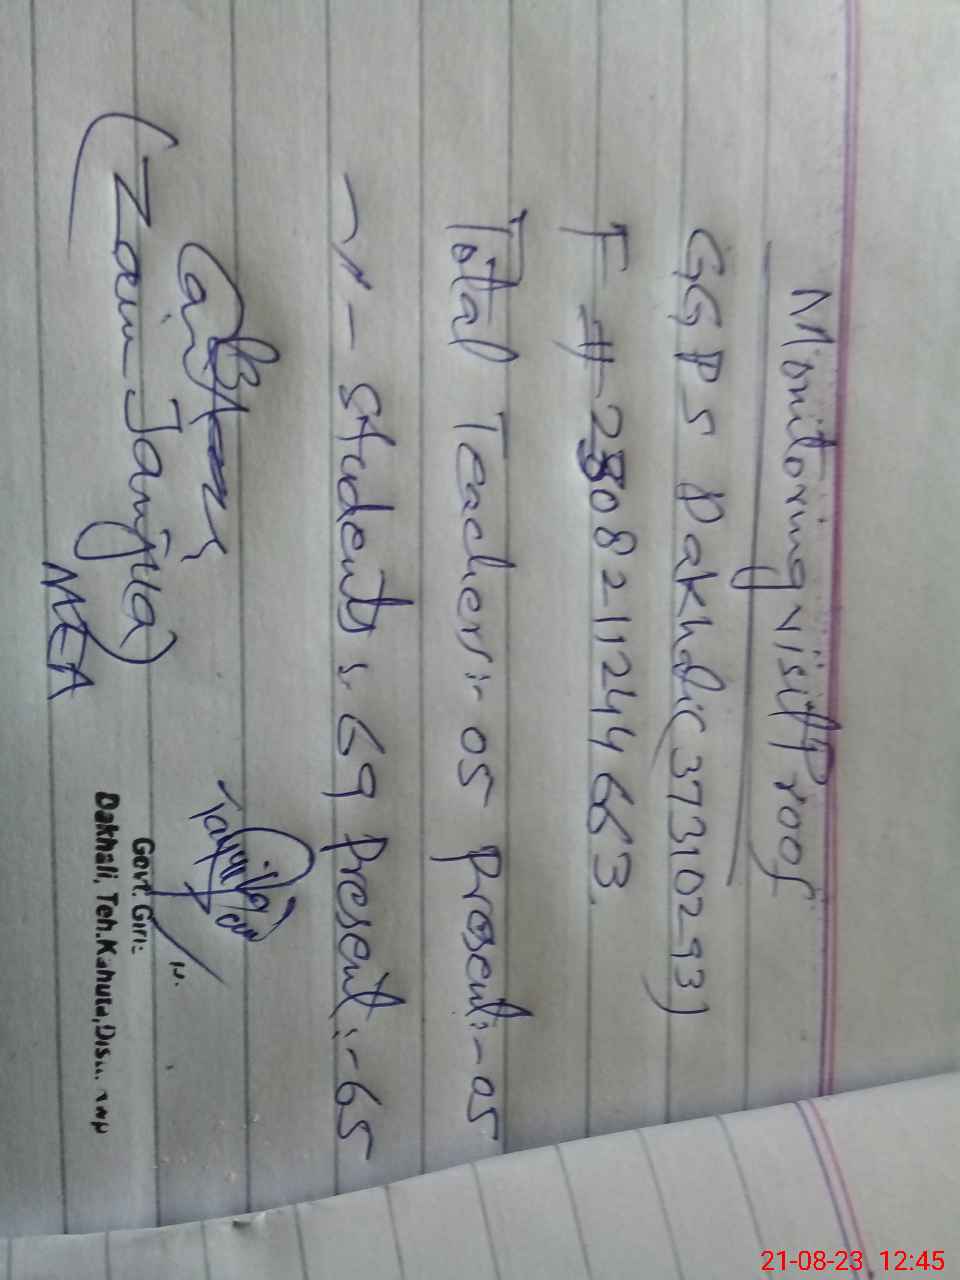 Monitoring visit Proof
GGPS Dakhali (37310293)
F # 230821124 4663.
Total Teachers:- 05 Present:- 05
~ 〃 - Students:. 69 Present:- 65
(Zain Janjua)
MEA
Govt. Girls
Dakhali, Teh. Kahuta, Distt. RWP
21-08-23 12:45